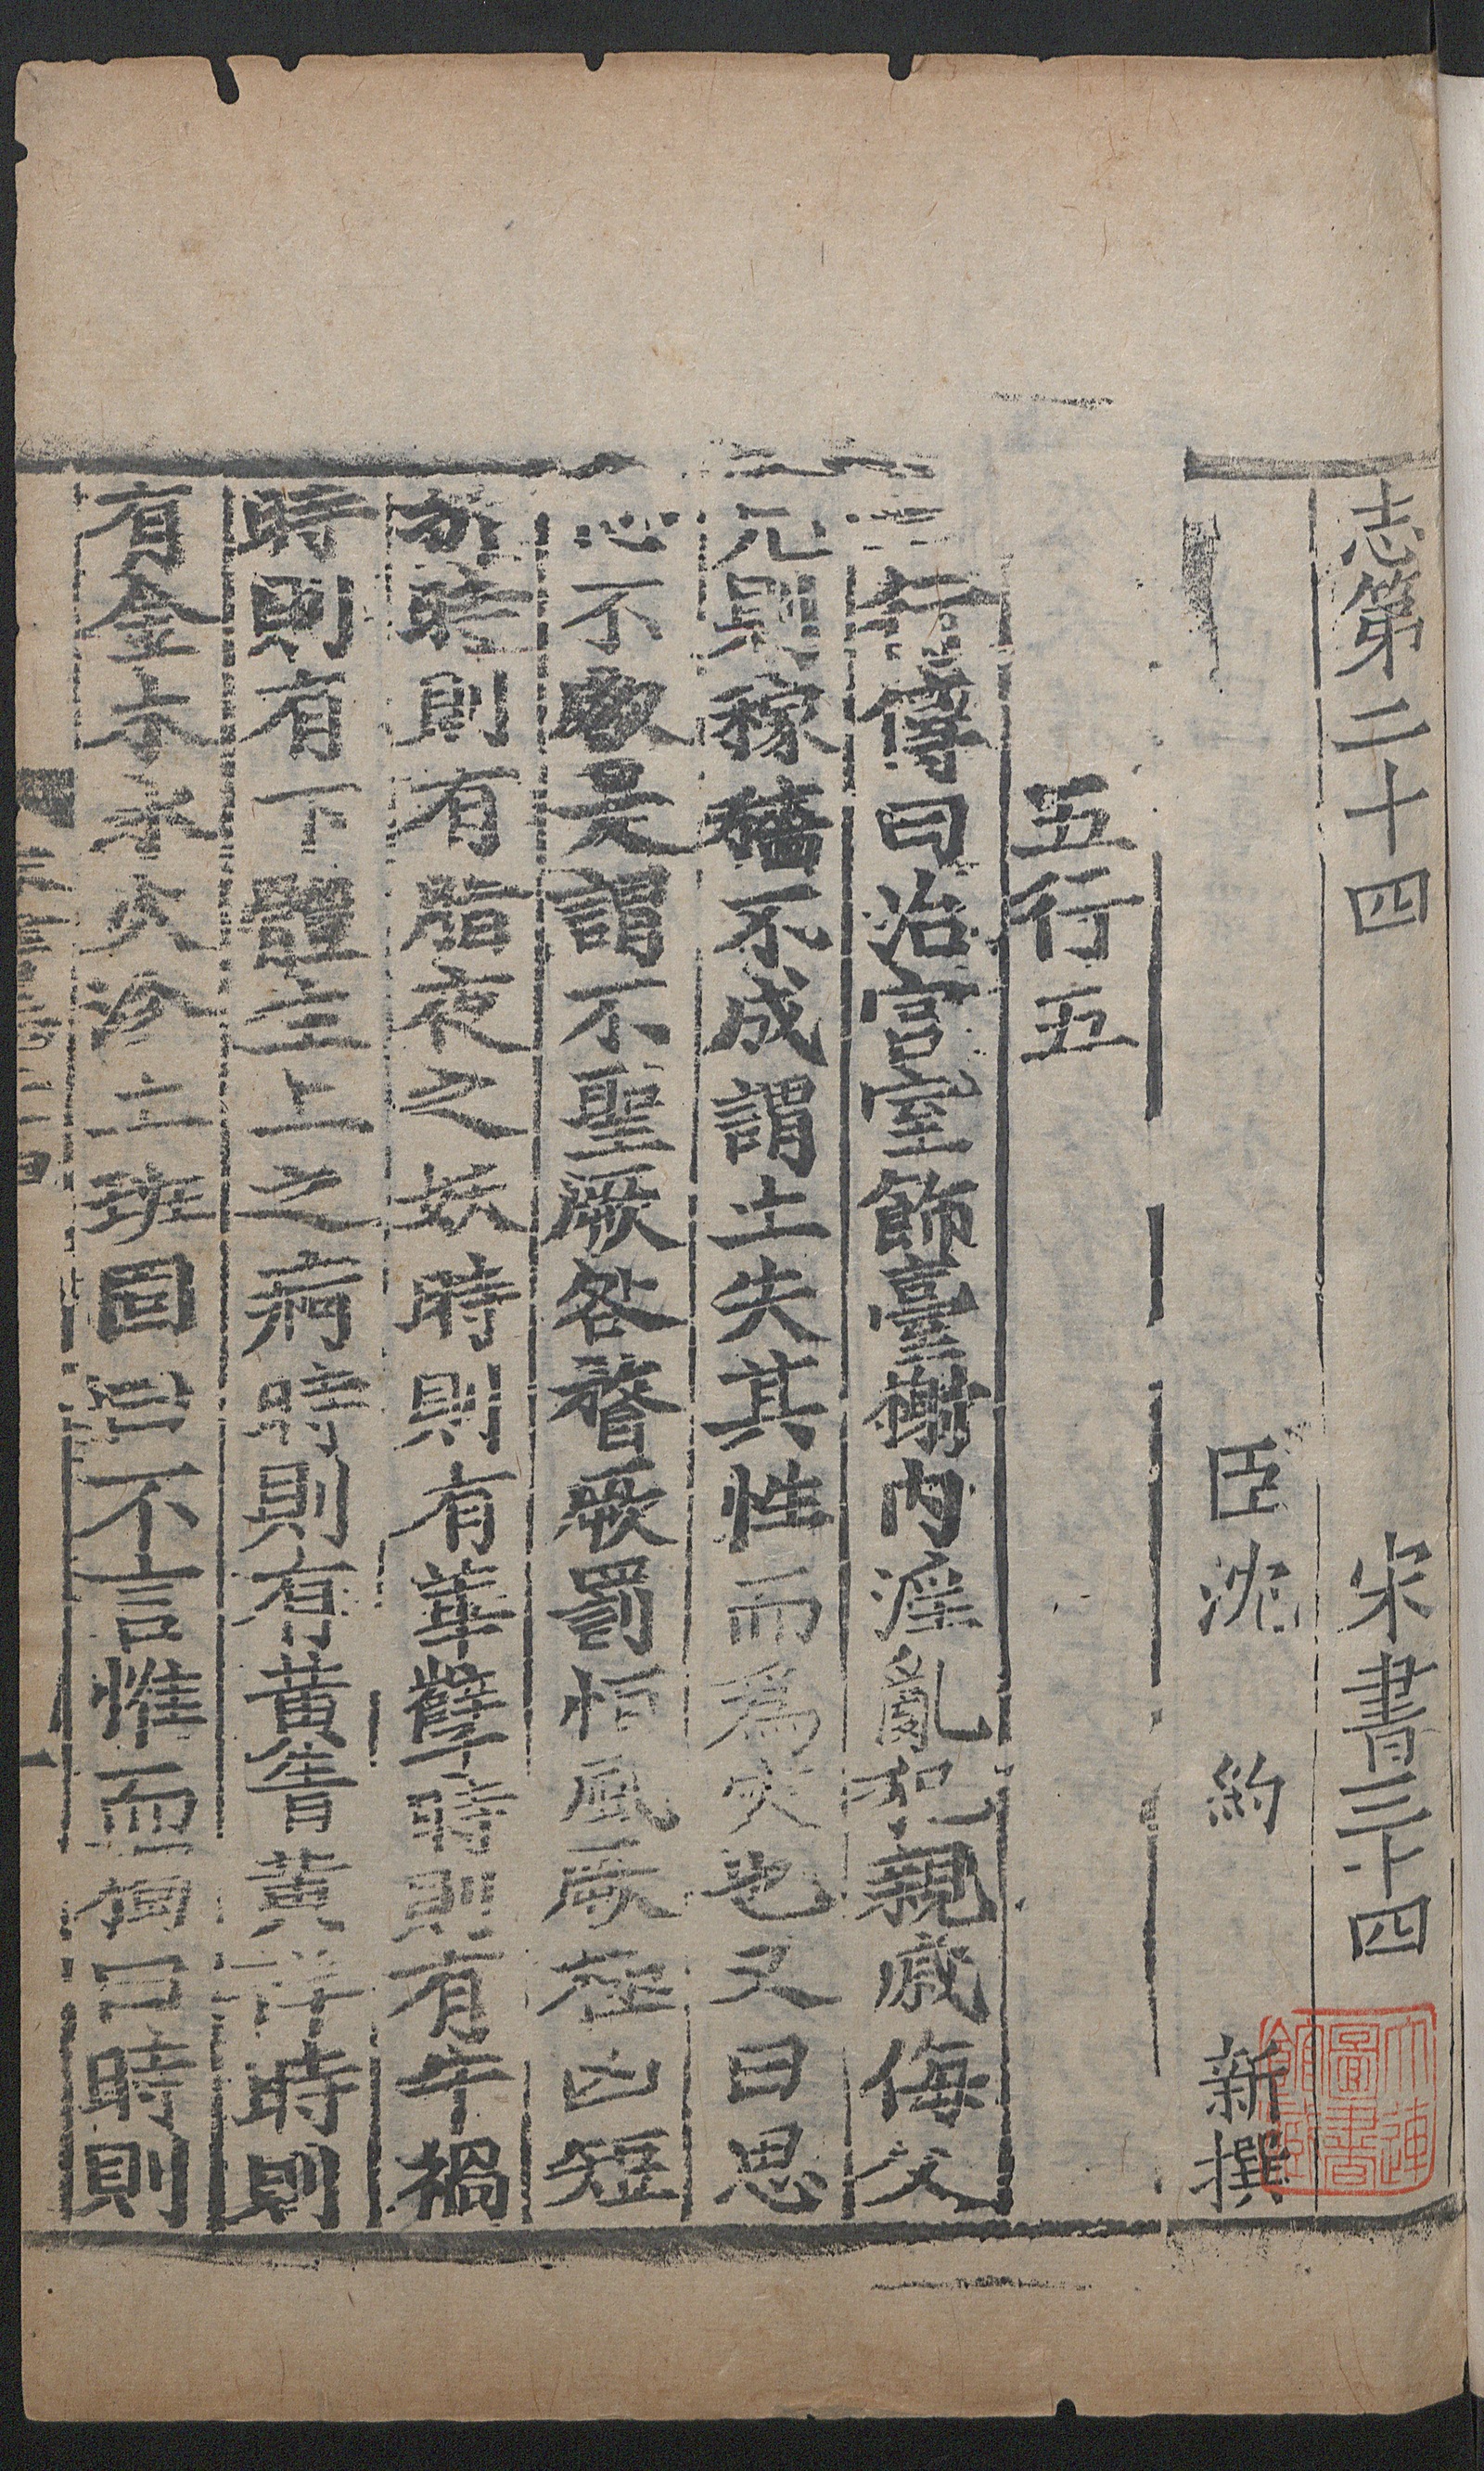 志第二十四 宋書三十四
臣沈 約 新撰
五行五
五行傳曰治宮室飾臺榭内淫亂犯親戚侮父
兄則稼穡不成謂土失其性而爲災也又曰思
心不叡是謂不聖厥咎瞀厥罰恒風厥極凶短
折時則有脂夜之妖時則有華孽時則有牛禍
時則有下體生上之痾時則有黃眚黃祥時則
有金木水火沴土班固曰不言惟而獨曰時則
大連圖書館藏